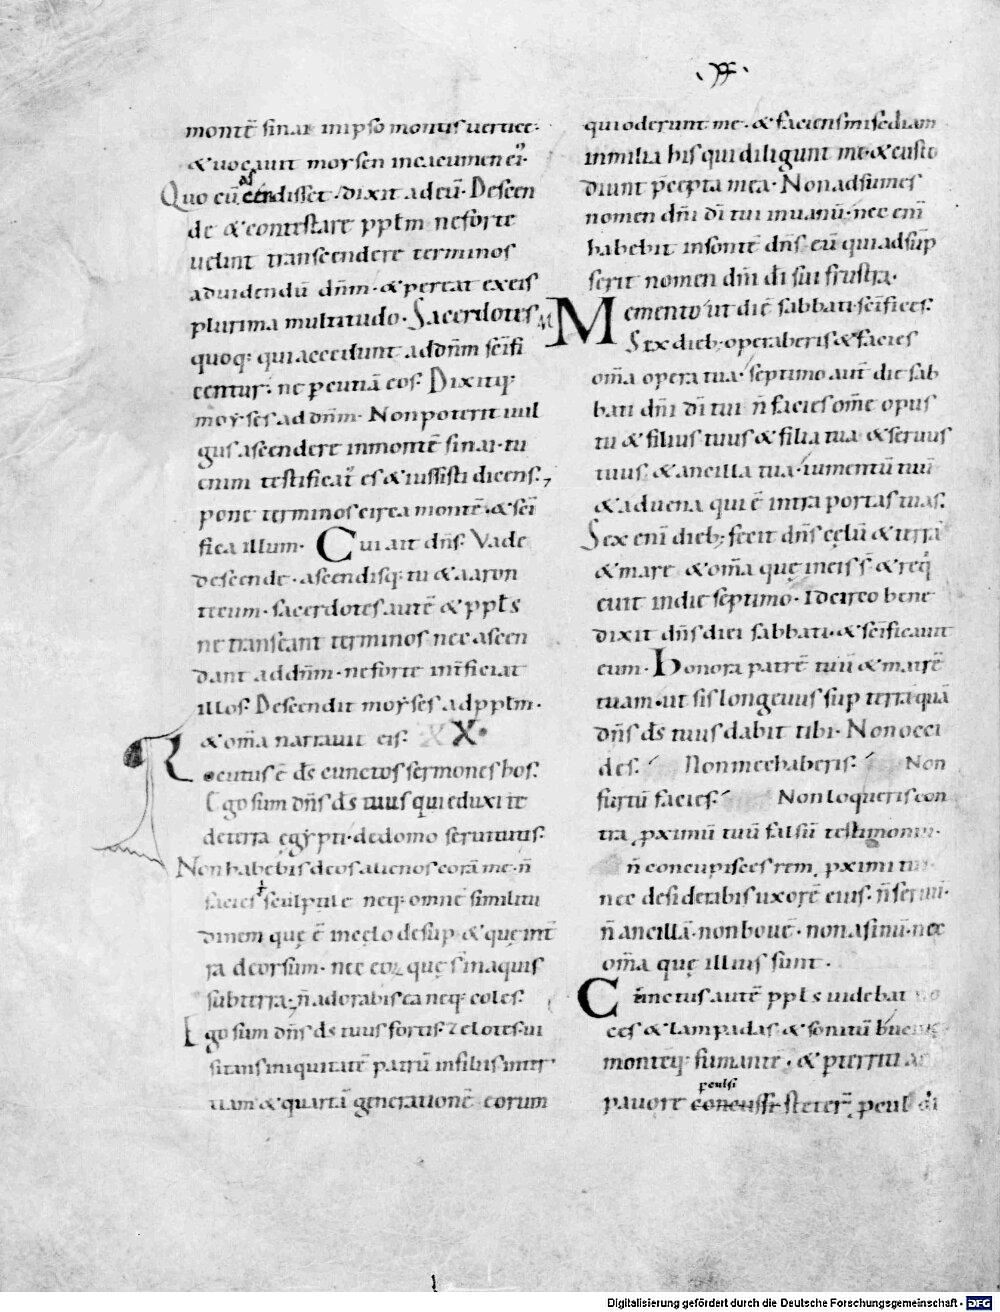 .xx.
montē sinai in ipso montis uertice.
& uocauit moysen in cacumen ei᷒.
Quo cū ascendisset. dixit ad eū. Descen
de & contestare pplm ne forte
uelint transcendere terminos
ad uidendū dn̄m. & pereat ex eis
plurima multitudo. Sacerdotes
quoq; qui accedunt ad dn̄m sc̄ifi
centur. ne pcutiā eos. Dixitq;
moyses ad dn̄m. Non poterit uul
gus ascendere in montē sinai. tu
enim testificat᷒ es & iussisti dicens.
pone terminos circa montē. & sc̄i
fica illum. Cui ait dn̄s. Vade
descende. ascendisq; tu & aaron
tecum. sacerdotes autē & ppls
ne transeant terminos nec ascen
dant ad dn̄m. ne forte int̄ficiat
illos. Descendit moyses ad pplm.
& om̄a narrauit eis. XX.
Locutus ē ds̄ cunctos sermones hos.
Ego sum dn̄s ds̄ tuus qui eduxi te
de terra ęgypti. de domo seruitutis.
Non habebis deos alienos corā me. n̄
facies t sculptile neq; omnē similitu
dinem quę ē in cęlo desup & quę in t̄
ra deorsum. nec eoꝝ quę s̄ in aquis
sub terra. n̄ adorabis ea neq; coles.
Ego sum dn̄s ds̄ tuus fortis. zelotes. ui
sitans iniquitatē patrū in filiis in ter
tiam & quartā generationē eorum
qui oderunt me. & faciens misediam
in milia his qui diligunt me. & custo
diunt p̄cepta mea. Non adsumes
nomen dn̄i dī tui in uanū. nec enī
habebit insontē dn̄s eū qui adsūp
serit nomen dn̄i dī sui frustra.
M Memento ut diē sabbati sc̄ifices.
Sex dieb; operaberis & facies
om̄a opera tua. septimo aut̄ die sab
bati dn̄i dī tui n̄ facies om̄e opus
tu & filius tuus & filia tua & seruus
tuus. & ancilla tua. iumentū tuū
& aduena qui ē intra portas tuas.
Sex enī dieb; fecit dn̄s cęlū & terrā
& mare & om̄a quę in eis s̄ & req
euit in die septimo. Idcirco bene
dixit dn̄s diei sabbati. & sc̄ificauit
eum. Honora patrē tuū & matrē
tuam. ut sis longeuus sup terrā quā
dn̄s ds̄ tuus dabit tibi. Non occi
des. Non mechaberis. Non
furtū facies. Non loqueris con
tra pximū tuū falsū testimoniū.
n̄ concupisces rem pximi tui
nec desiderabis uxorē eius. n̄ seruū.
n̄ ancillā. non bouē. non asinū. nec
om̄a quę illius sunt.
Cunctus autē ppls uidebat uo
ces & lampadas & sonitū bucinę
montēq; fumantē. & pterriti ac
pulsi
pauore concussi steter̄ pcul di